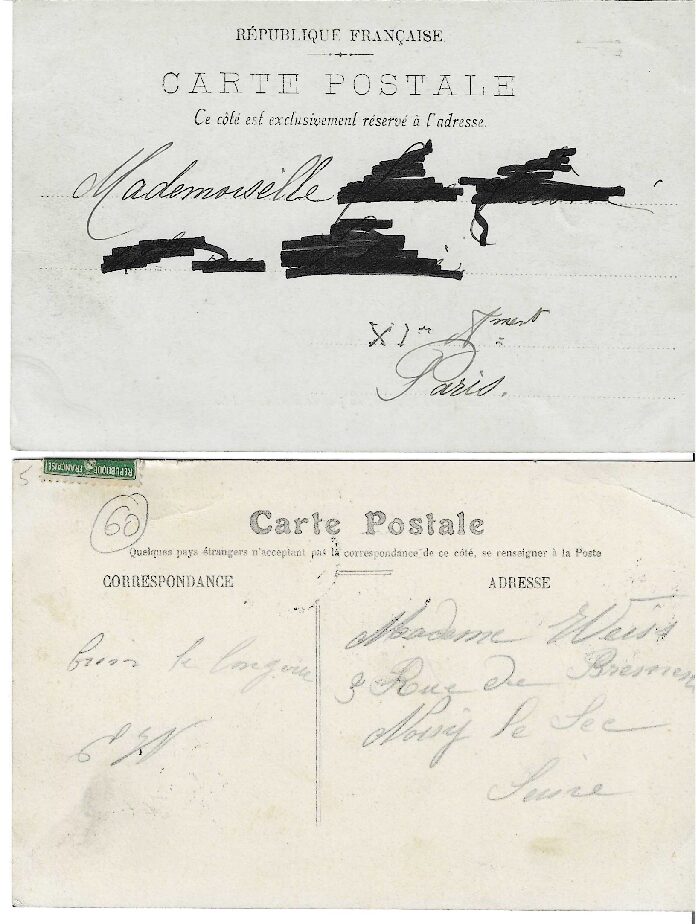 RÉPUBLIQUE FRANÇAISE
CARTE POSTALE
Ce côté est exclusivement réservé à l'adresse.
Mademoiselle
XIme
Paris.
RÉPUBLIQUE
FRANÇAISE
5
60
Carte Postale
Quelques pays étrangers n'acceptant pas la correspondance de ce côté, se renseigner à la Poste
CORRESPONDANCE
ADRESSE
Madame Weiss
3 Rue de Bremen
Noisy le Sec
Seine